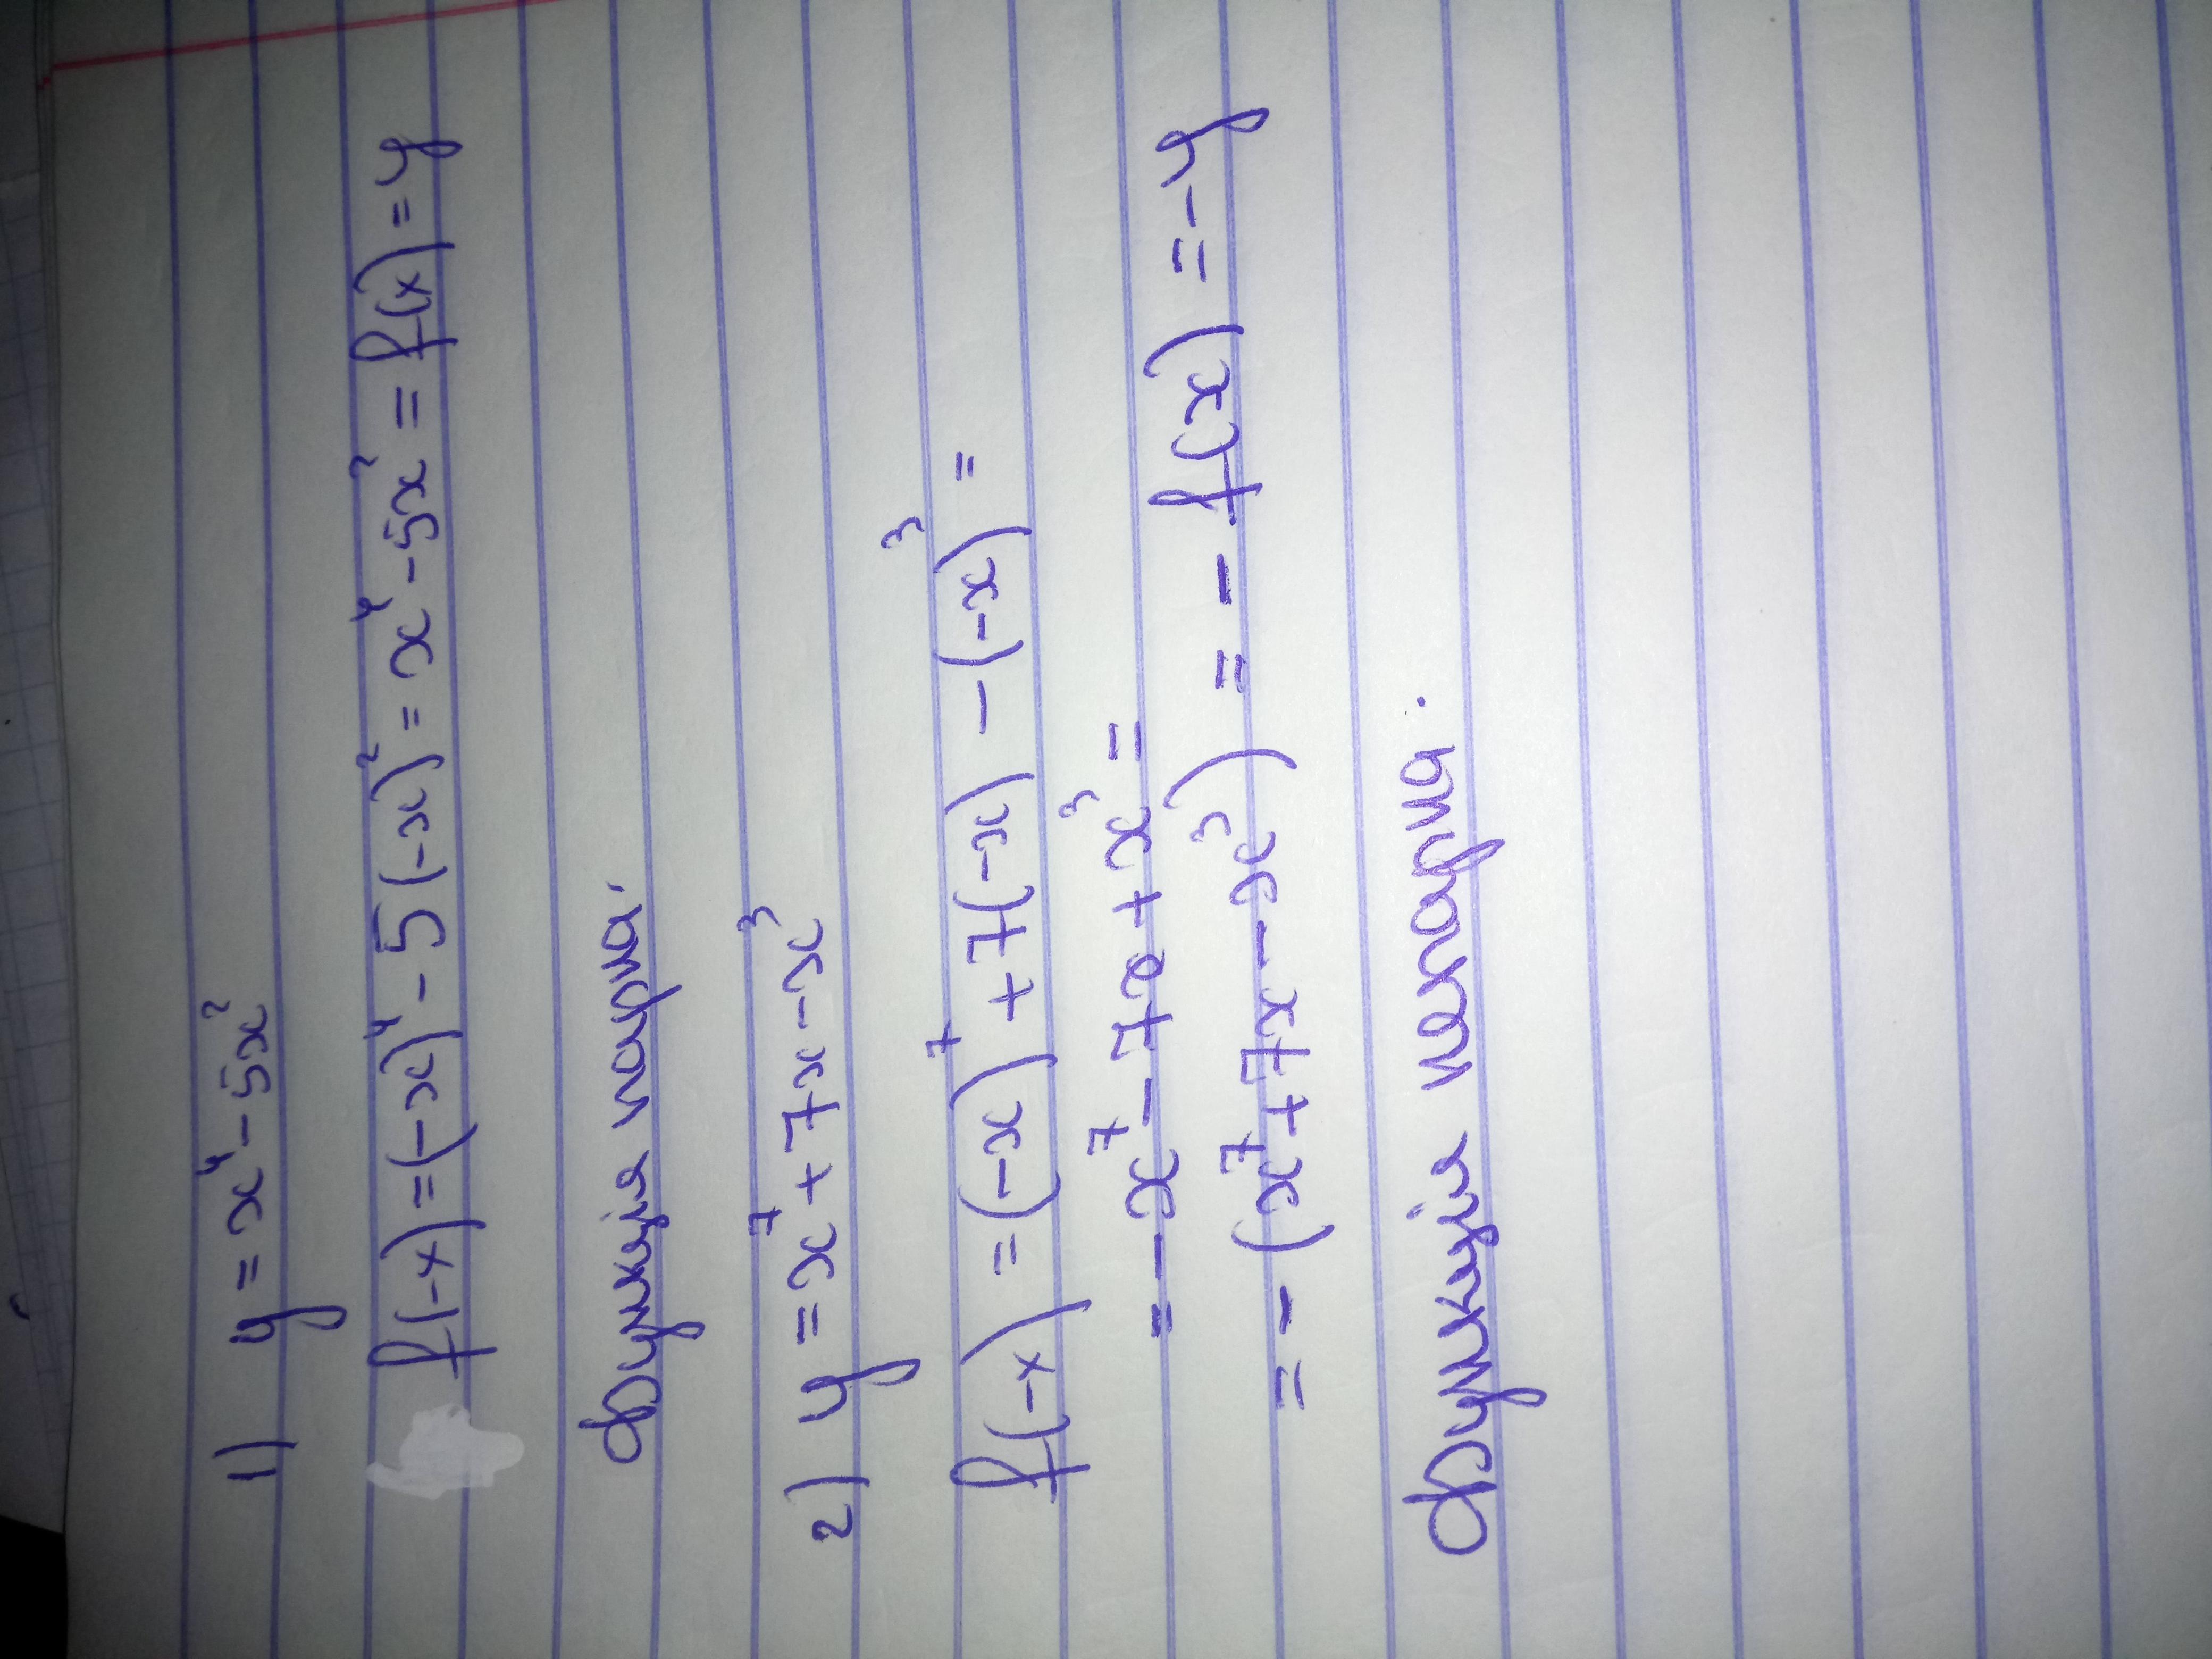 1) y = x⁴ - 5x²
f(-x) = (-x)⁴ - 5(-x)² = x⁴ - 5x² = f(x) = y
функція парна.
2) y = x⁷ + 7x - x³
f(-x) = (-x)⁷ + 7(-x) - (-x)³ =
= -x⁷ - 7x + x³ =
= -(x⁷ + 7x - x³) = - f(x) = -y
функція непарна.